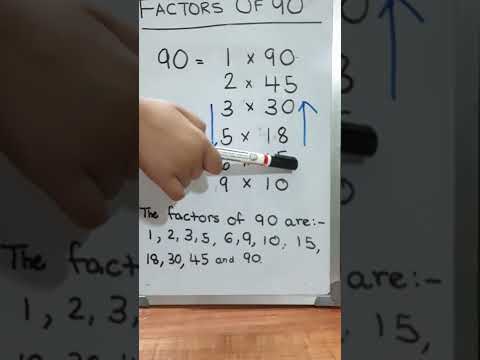 FACTORS OF 90
90 = 1 × 90
2 × 45
3 × 30
5 × 18
9 × 10
The factors of 90 are:-
1, 2, 3, 5, 6, 9, 10, 15,
18, 30, 45 and 90.